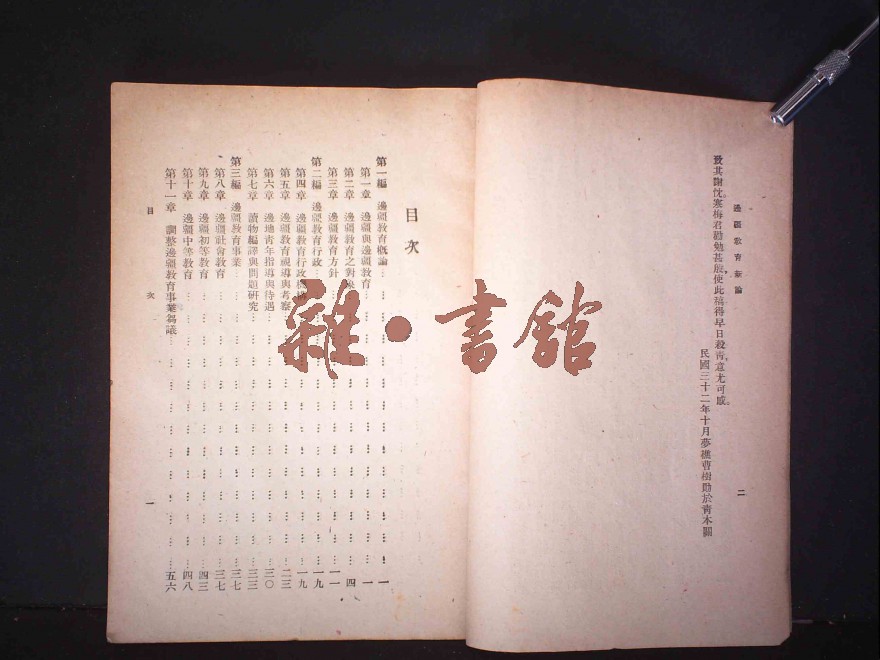 邊疆教育新論
致其謝忱。寒梅君勖勉甚殷，使此稿得早日殺靑，意尤可感。
民國三十二年十月夢樵曹樹勛於靑木關
二
目次
第一編 邊疆教育槪論 一
第一章 邊疆與邊疆教育 一
第二章 邊疆教育之對象 四
第三章 邊疆教育方針 一一
第二編 邊疆教育行政 一九
第四章 邊疆教育行政機構 一九
第五章 邊疆教育視導與考察 二三
第六章 邊地靑年指導與待遇 三〇
第七章 讀物編譯與問題硏究 三三
第三編 邊疆教育事業 三七
第八章 邊疆社會教育 三七
第九章 邊疆初等教育 四三
第十章 邊疆中等教育 四八
第十一章 調整邊疆教育事業芻議 五六
目 次
一
雜·書館